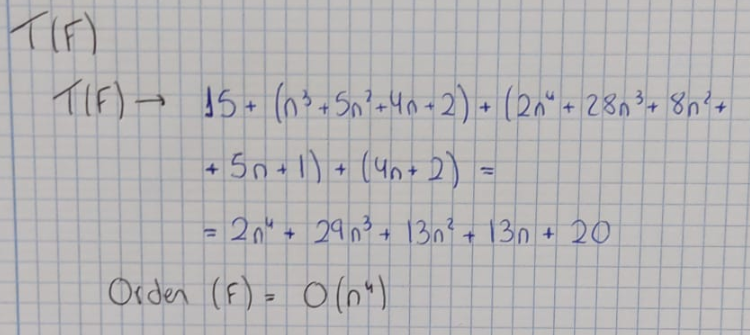 T(F)
T(F) → 15 + (n³ + 5n² + 4n + 2) + (2n⁴ + 28n³ + 8n² +
+ 5n + 1) + (4n + 2) =
= 2n⁴ + 29n³ + 13n² + 13n + 20
Orden (F) = O(n⁴)